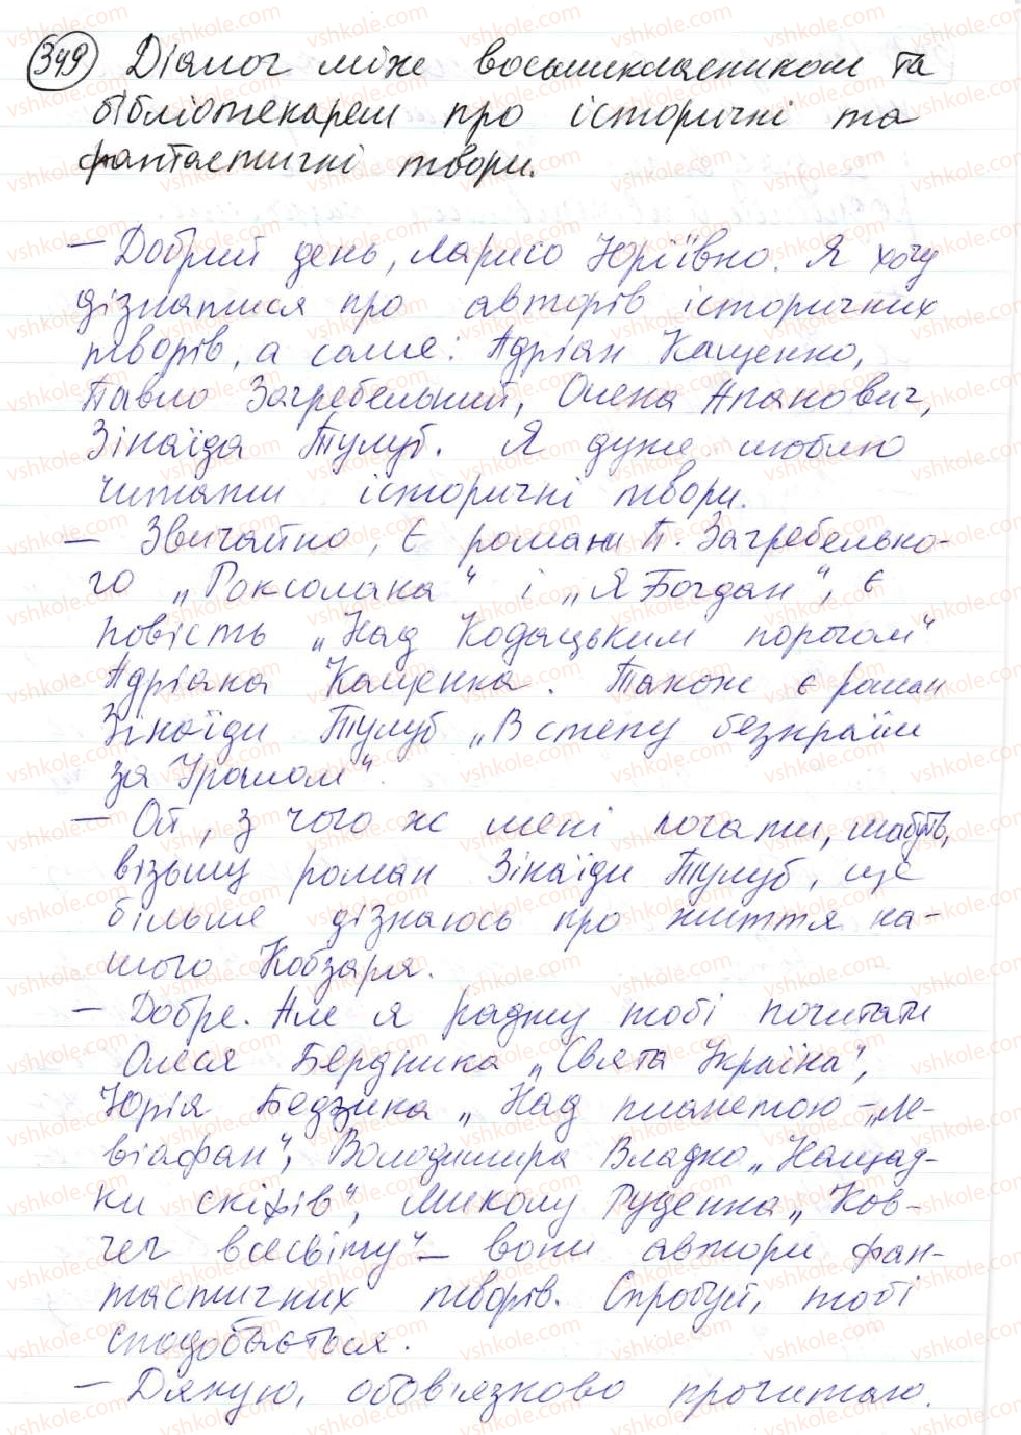 349 Діалог між восьмикласником та
бібліотекарем про історичні та
фантастичні твори.
— Добрий день, Ларисо Юріївно. Я хочу
дізнатися про авторів історичних
творів, а саме: Адріан Кащенко,
Павло Загребельний, Олена Апанович,
Зінаїда Тулуб. Я дуже люблю
читати історичні твори.
— Звичайно, є романи П. Загребельно-
го „Роксолана“ і „Я Богдан“, є
повість „Над Кодацьким порогом“
Адріана Кащенка. Також є роман
Зінаїди Тулуб „В степу безкраїм
за Уралом“.
— Ой, з чого ж мені почати, мабуть,
візьму роман Зінаїди Тулуб, ще
більше дізнаюсь про життя на-
шого Кобзаря.
— Добре. Але я раджу тобі почитати
Олеся Бердника „Свята Україна“,
Юрія Бедзика „Над планетою – „Ле-
віафан“, Володимира Владко „Нащад-
ки скіфів“, Миколу Руденка „Ков-
чег всесвіту“ – вони автори фан-
тастичних творів. Спробуй, тобі
сподобається.
— Дякую, обов'язково прочитаю.